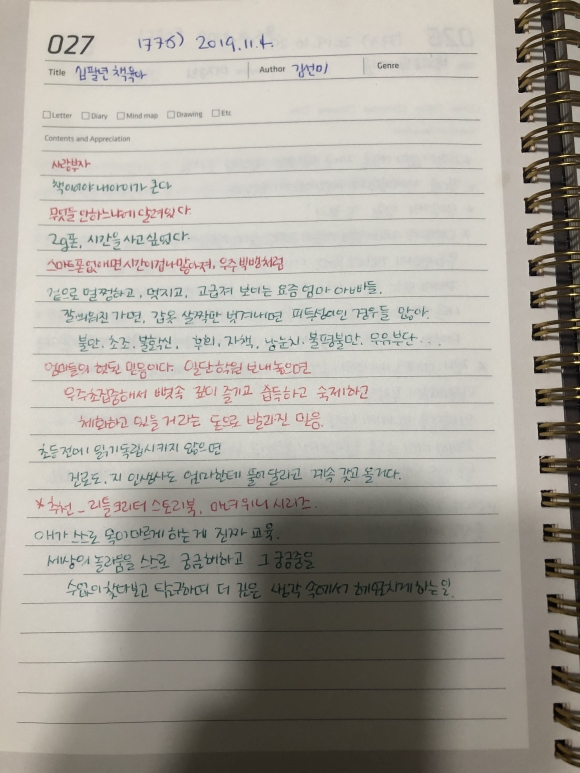 027 1775) 2019.11.4.
Title 십팔년 책육아 Author 김선미 Genre
Letter Diary Mind map Drawing Etc
Contents and Appreciation
사랑부자
책이어야 내아이가 큰다
무엇을 안하느냐에 달려있다.
2g폰, 시간을 사고 싶었다.
스마트폰 없애면 시간이 겁나 많아져, 우주 빅뱅처럼
겉으로 멀쩡하고, 멋지고, 고급져 보이는 요즘 엄마 아빠들.
잘 씌워진 가면, 갑옷 살짝만 벗겨내면 피투성이인 경우들 많아.
불만, 초조, 불확신, 후회, 자책, 남눈치, 불평불만, 우유부단...
엄마들의 헛된 믿음이다. 일단 학원 보내놓으면
우주초집중해서 뼛속 깊이 즐기고 습득하고 숙제하고
체화하고 있을 거라는 돈으로 발라진 믿음.
초등 전에 읽기독립시키지 않으면
진로도, 지 인생사도 엄마한테 풀어달라고 계속 갖고 올거다.
*추천_리틀크리터 스토리북, 마녀위니 시리즈.
애가 스스로 목이 마르게 하는 게 진짜 교육.
세상의 놀라움을 스스로 궁금해하고 그 궁금증을
수없이 찾아보고 탐구하며 더 깊은 생각 속에서 헤엄치게 하는 일.